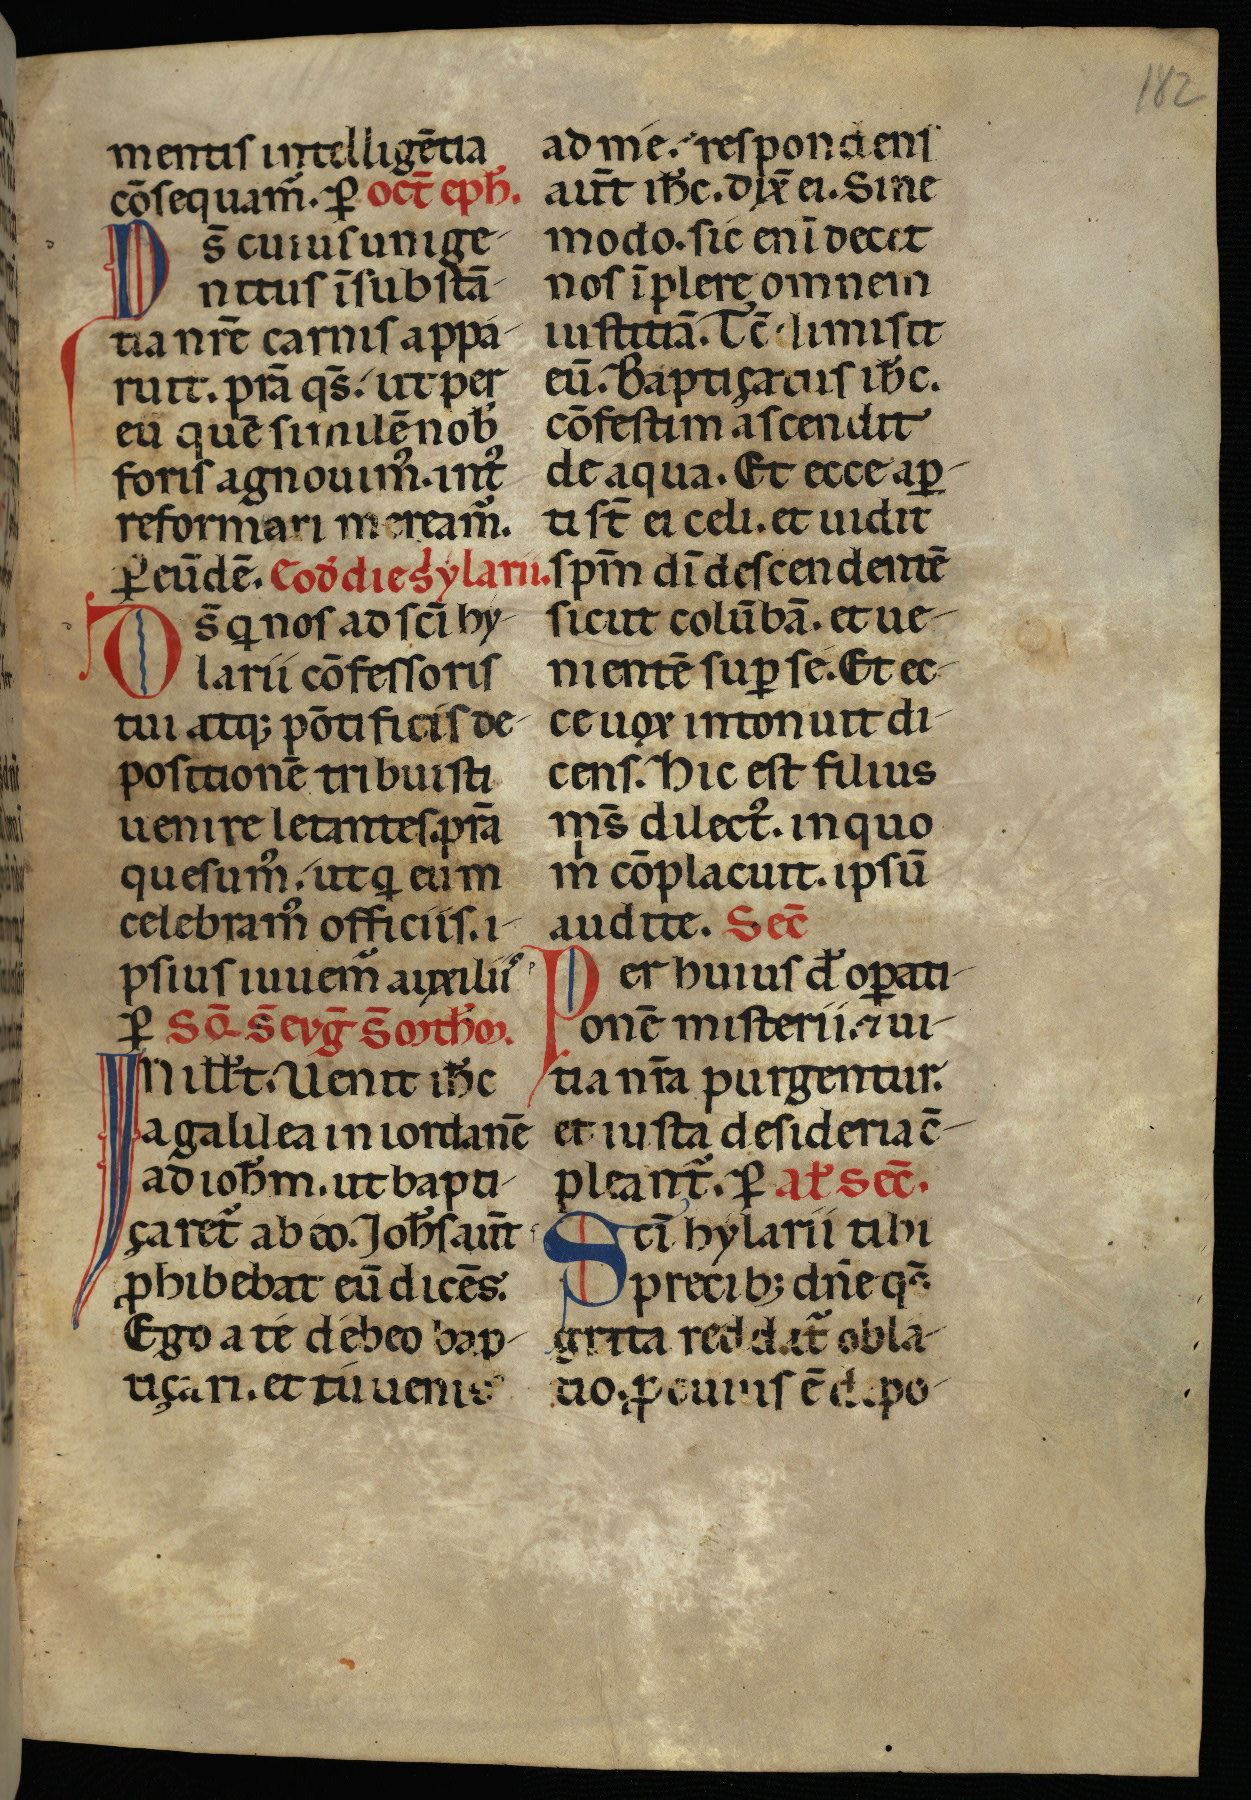 182
mentis intelligētia
cōsequam᷑. ꝑ oct̄ eph̄.
Ds̄ cuius unige-
nitus īsubstā-
tia nr̄e carnis appa-
ruit. prā qs̄. ut per
eū quē similē nob̄
foris agnouim᷒. int᷒
reformari meream᷑.
ꝑ eūdē. Eod̄ die s̄ ylarii.
Ds̄ q̇ nos ad sc̄i hy-
larii cōfessoris
tui atq; pōtificis de-
positionē tribuisti
uenire letantes. prā
quesum᷒. ut q̇ eum
celebram᷒ officiis. i-
psius iuuem᷑ auxiliis
ꝑ Sꝗ̄ s̄ evḡ s̄ Mth̄m.
IN ill̄ t̄. Uenit ih̄c
a galilea in iordanē
ad ioh̄m. ut bapti-
çaret᷑ ab eo. Joh̄s aūt
ꝓhibebat eū dicēs.
Ego a te debeo bap-
tiçari. et tu uenis
ad me. respondens
aūt ih̄c. dix̄ ei. Sine
modo. sic enī decet
nos īplere omnem
iustitiā. Tc̄ dimisit
eū. Baptiçatus ih̄c.
cōfestim ascendit
de aqua. Et ecce aꝑ-
ti st̄ ei celi. et uidit
spm̄ dī descendentē
sicut colūbā. et ue-
nientē suꝑ se. Et ec-
ce uox intonuit di-
cens. Hic est filius
ms̄ dilect᷒. in quo
m cōplacuit. ipsū
audite. Sec̄
Per huius d᷑ oꝑati-
onē misterii. ⁊ ui-
tia nr̄a purgentur.
et iusta desideria c̄-
pleant᷑. ꝑ al̄ sec̄.
Sc̄i hylarii tibi
precib; dn̄e qs̄.
grata reddat᷑ obla-
tio. ꝓ cuius ē depo-